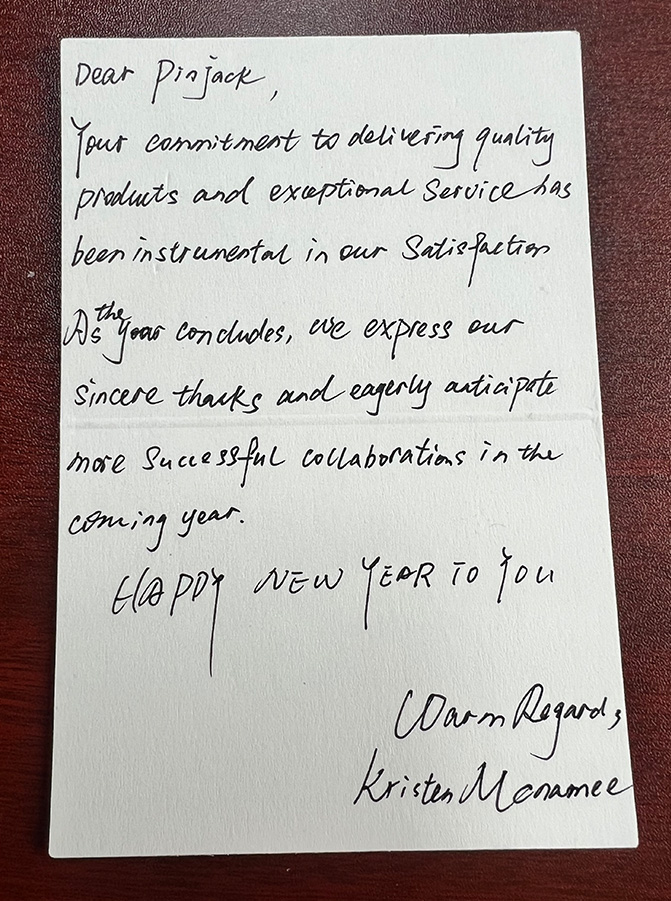 Dear Pinjack,
Your commitment to delivering quality
products and exceptional Service has
been instrumental in our Satisfaction
As the year concludes, we express our
sincere thanks and eagerly anticipate
more Successful collaborations in the
coming year.
HAPPY NEW YEAR TO YOU
Warm Regards
Kristen Mcnamee